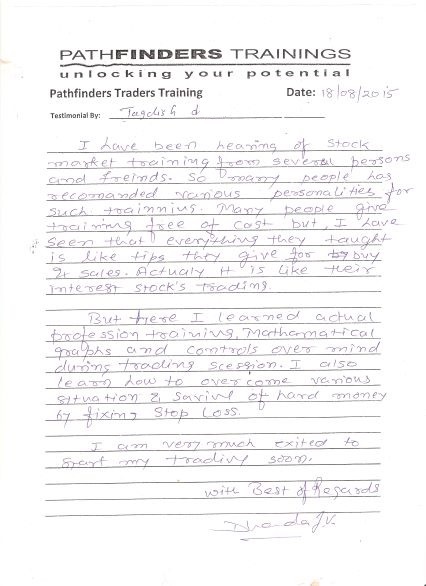 PATHFINDERS TRAININGS
unlocking your potential
Pathfinders Traders Training Date: 18/08/2015
Testimonial By: Jagdish d
I have been hearing of Stock
market training from several persons
and freinds. So many people has
recomanded various personalities for
such trainnius. Many people give
training free of cost but, I have
seen that everything they taught
is like tips they give for buy
& sales. Actualy it is like their
interest stock's trading.
But here I learned actual
profession training, Mathamatical
graphs and controls over mind
during trading scession. I also
learn how to overcome various
situation & Savive of hard money
by fixing Stop Loss.
I am very much exited to
start my trading soon.
with Best of Regards